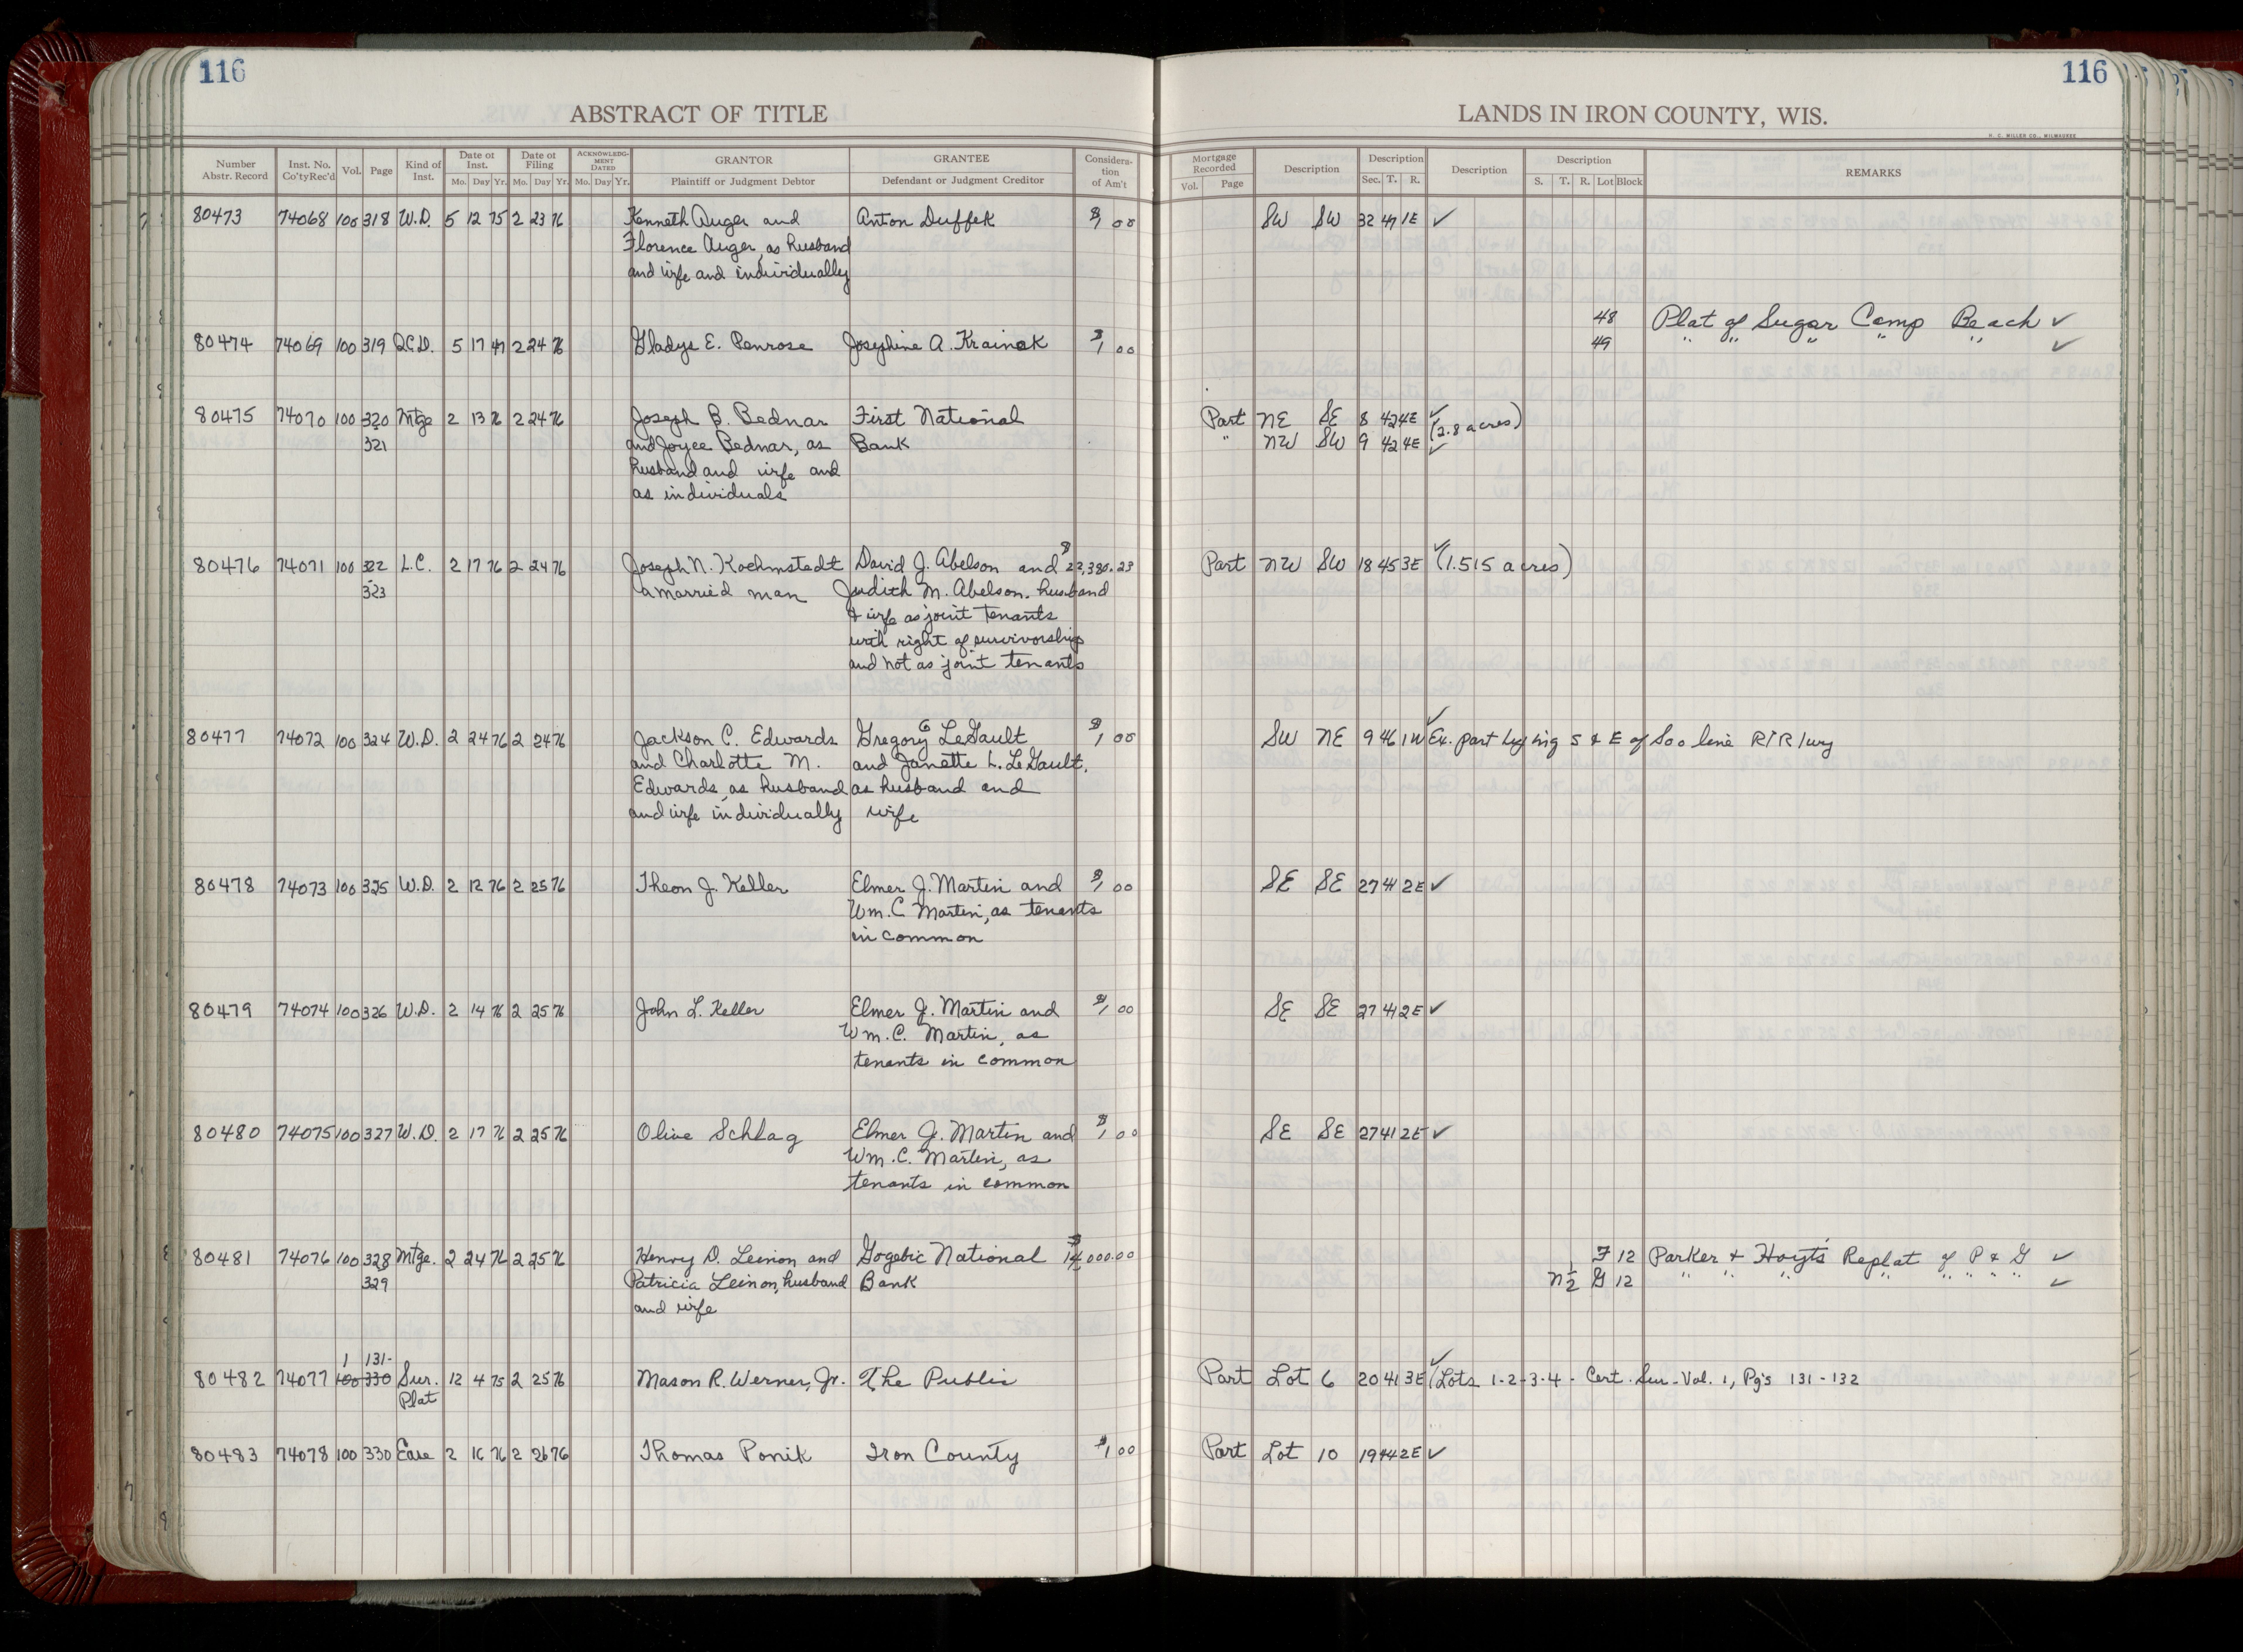 116
116
ABSTRACT OF TITLE
LANDS IN IRON COUNTY, WIS.
H. C. MILLER CO., MILWAUKEE
Number Abstr. Record Inst. No. Co'tyRec'd Vol. Page Kind of Inst. Date of Inst. Mo. Day Yr. Date of Filing Mo. Day Yr. ACKNOWLEDG-MENT DATED Mo. Day Yr. GRANTOR Plaintiff or Judgment Debtor GRANTEE Defendant or Judgment Creditor Considera-tion of Am't
Mortgage Recorded Vol. Page Description Description Sec. T. R. Description Description S. T. R. Lot Block REMARKS
80473 74068 100 318 W.D. 5 12 75 2 23 76 Kenneth Auger and Anton Duffek $1 00 SW SW 32 47 1E ✓
Florence Auger, as husband
and wife and individually
48 Plat of Sugar Camp Beach ✓
80474 74069 100 319 Q.C.D. 5 17 47 2 24 76 Gladys E. Penrose Josephine A. Krainak $1 00 49 " " " " " ✓
80475 74070 100 320 Mtge 2 13 76 2 24 76 Joseph B. Bednar First National Part NE SE 8 42 4E ✓
321 and Joyce Bednar, as Bank " NW SW 9 42 4E ✓ (2.8 acres)
husband and wife and
as individuals
80476 74071 100 322 L.C. 2 17 76 2 24 76 Joseph N. Kochmstedt David J. Abelson and $22,380.23 Part NW SW 18 45 3E ✓ (1.515 acres)
323 a married man Judith M. Abelson, husband
& wife as joint tenants
with right of survivorship
and not as joint tenants
80477 74072 100 324 W.D. 2 24 76 2 24 76 Jackson C. Edwards Gregory G LeGault $1 00 SW NE 9 46 1W ✓ Ex. part lying S & E of Soo line R/R/wy
and Charlotte M. and Janette L. LeGault,
Edwards, as husband as husband and
and wife individually wife
80478 74073 100 325 W.D. 2 12 76 2 25 76 Theon J. Keller Elmer J. Martin and $1 00 SE SE 27 41 2E ✓
Wm. C. Martin, as tenants
in common
80479 74074 100 326 W.D. 2 14 76 2 25 76 John L. Keller Elmer J. Martin and $1 00 SE SE 27 41 2E ✓
Wm. C. Martin, as
tenants in common
80480 74075 100 327 W.D. 2 17 76 2 25 76 Olive Schlag Elmer J. Martin and $1 00 SE SE 27 41 2E ✓
Wm. C. Martin, as
tenants in common
80481 74076 100 328 Mtge. 2 24 76 2 25 76 Henry D. Leinon and Gogebic National $14,000.00 F 12 Parker & Hoyt's Replat of P & G ✓
329 Patricia Leinon, husband Bank N½ G 12 " " " " " " " " ✓
and wife
1 131-
80482 74077 100 330 Sur. 12 4 75 2 25 76 Mason R. Werner, Jr. The Public Part Lot 6 20 41 3E ✓ (Lots 1-2-3-4 - Cert. Sur. Vol. 1, Pg's 131-132
Plat
80483 74078 100 330 Ease 2 16 76 2 26 76 Thomas Ponik Iron County $1 00 Part Lot 10 19 44 2E ✓